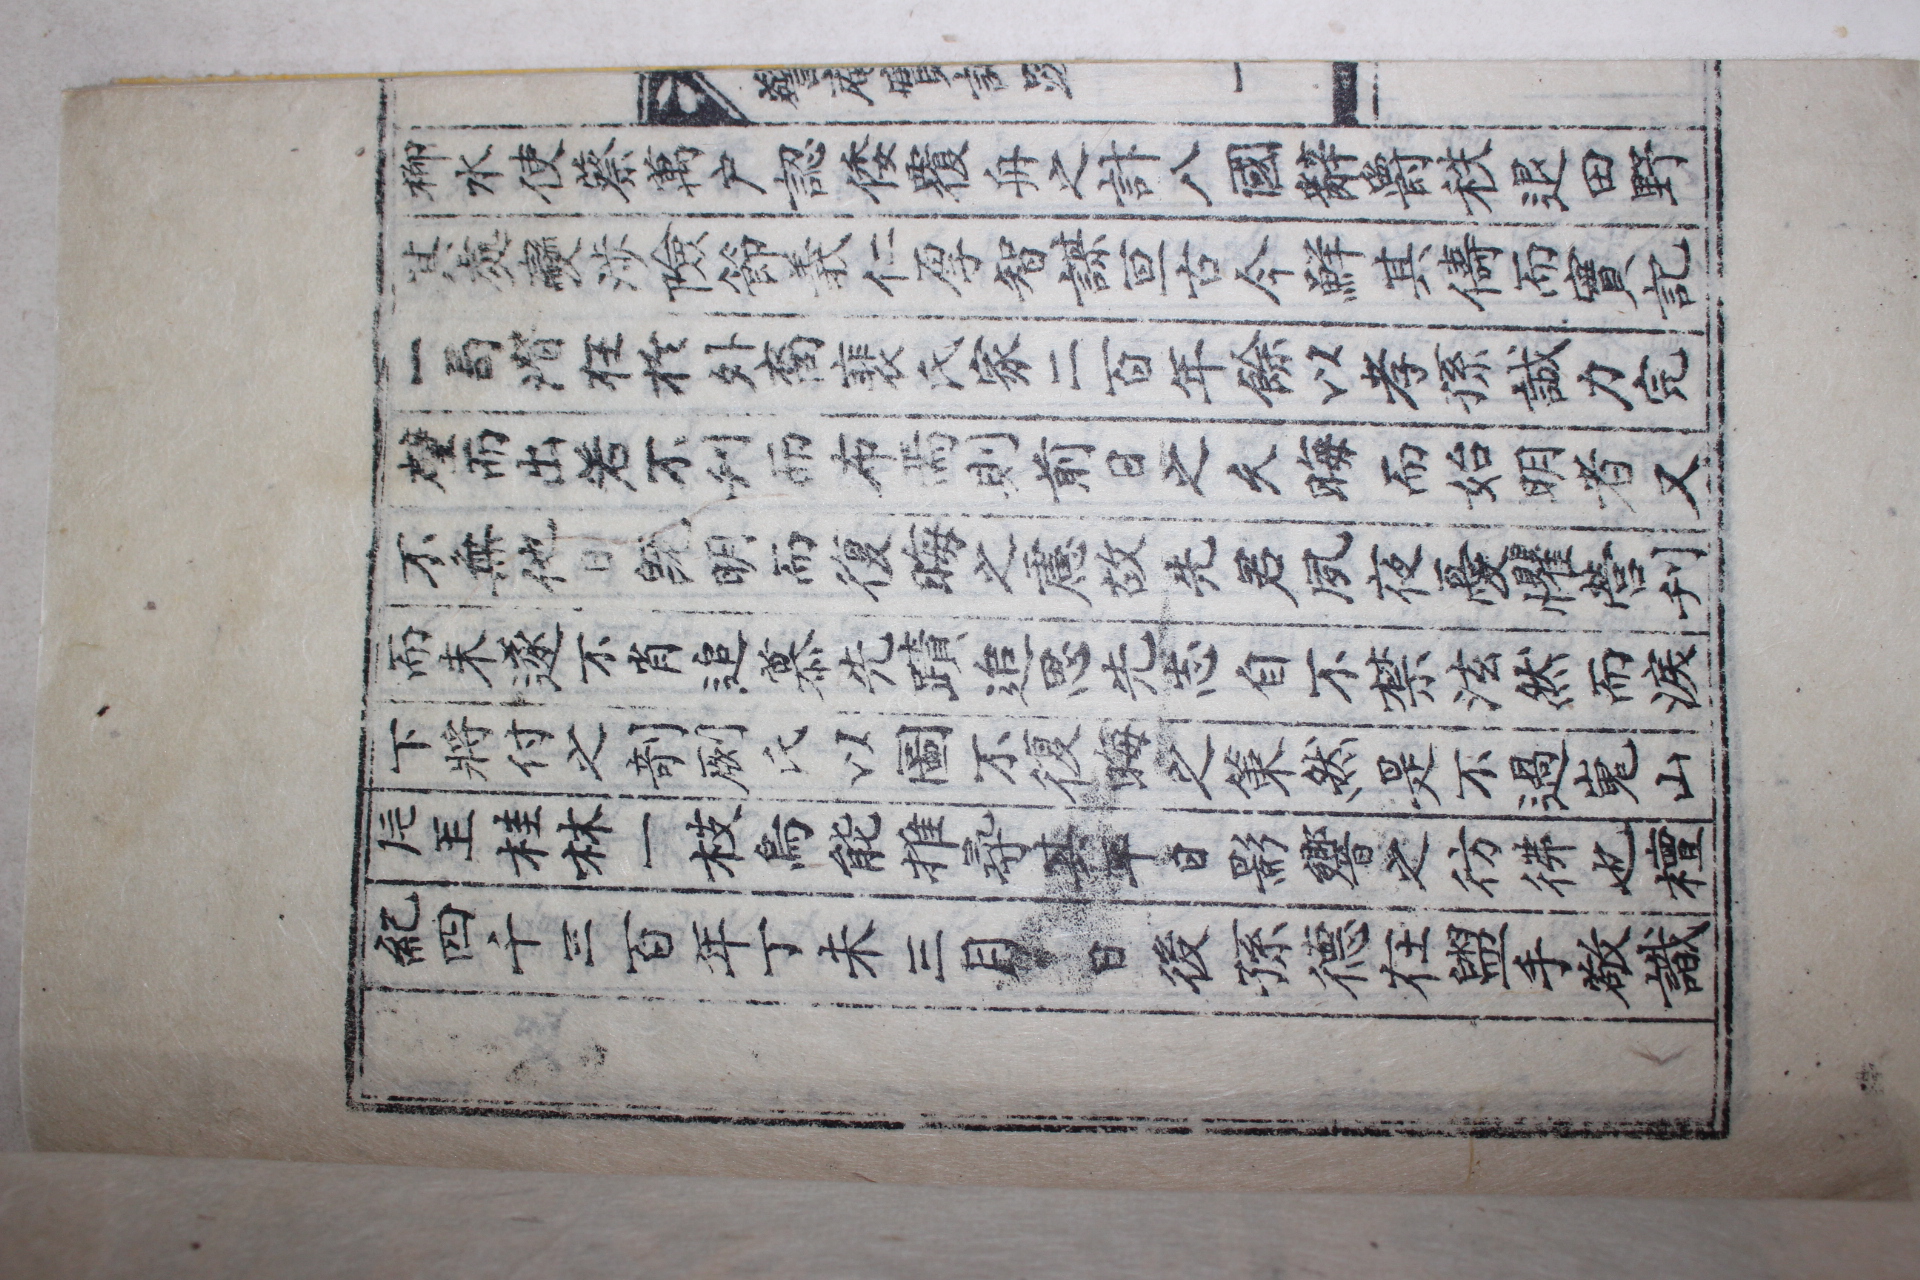 柳水使蔡萬戶認倭覆舟之計八國辭爵秩退田野
其處變涉險節義仁厚智謀亘古今鮮其儔而寶記
一局潛在於外裔裴氏家二百年餘以孝孫誠力完
璧而出若不刋而布焉則前日之久晦而始明者又
不無他日旣明而復晦之慮故先君夙夜憂懼營刋
而未遂不肖追慕先蹟追思先志自不禁泫然而淚
下將付之剞劂氏以圖不復晦之策然是不過嵬山
片玉桂林一枝烏能推尋其平日影響之彷彿也檀
紀四千三百年丁未三月 日後孫德在盥手敬識
警庵寶記跋 一